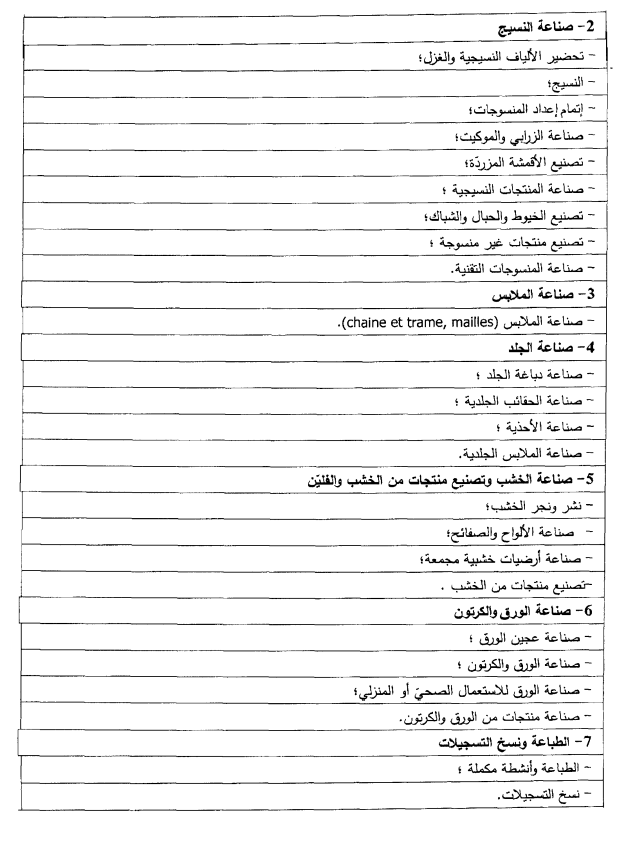 2- صناعة النسيج
- تحضير الألياف النسيجية والغزل؛
- النسيج؛
- إتمام إعداد المنسوجات؛
- صناعة الزرابي والموكيت؛
- تصنيع الأقمشة المزردّة؛
- صناعة المنتجات النسيجية ؛
- تصنيع الخيوط والحبال والشباك؛
- تصنيع منتجات غير منسوجة ؛
- صناعة المنسوجات التقنية.
3- صناعة الملابس
- صناعة الملابس (chaine et trame, mailles).
4- صناعة الجلد
- صناعة دباغة الجلد ؛
- صناعة الحقائب الجلدية ؛
- صناعة الأحذية ؛
- صناعة الملابس الجلدية.
5- صناعة الخشب وتصنيع منتجات من الخشب والفليّن
- نشر ونجر الخشب؛
- صناعة الألواح والصفائح؛
- صناعة أرضيات خشبية مجمعة؛
-تصنيع منتجات من الخشب .
6- صناعة الورق والكرتون
- صناعة عجين الورق ؛
- صناعة الورق والكرتون ؛
- صناعة الورق للاستعمال الصحيّ أو المنزلي؛
- صناعة منتجات من الورق والكرتون.
7- الطباعة ونسخ التسجيلات
- الطباعة وأنشطة مكملة ؛
- نسخ التسجيلات.